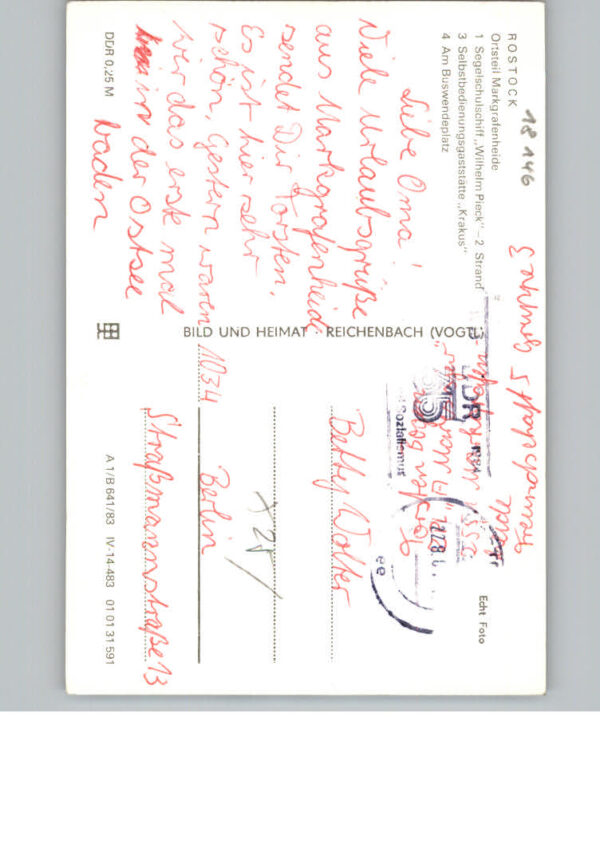 ROSTOCK
Ortsteil Markgrafenheide
1 Segelschulschiff „Wilhelm Pieck“ – 2 Strand
3 Selbstbedienungsgaststätte „Krakus“
4 Am Buswendeplatz
18 146
Liebe Oma!
Viele Urlaubsgrüße
aus Markgrafenheide
sendet Dir Torsten.
Es ist hier sehr
schön, Gestern waren
wir das erste mal
in der Ostsee
baden
DDR 0,25 M
BILD UND HEIMAT · REICHENBACH (VOGTL)
Torsten
DDR
1984
35
Sozialismus
Echt Foto
Betty Wolter
x 28/
1034
Berlin
Straßmannstraße 13
A 1/B 641/83 IV-14-483 01 01 31 591